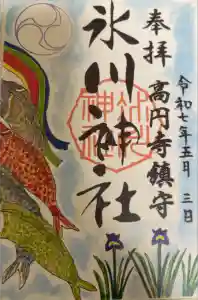 奉拝
高円寺鎮守
令和七年五月三日
氷川神社